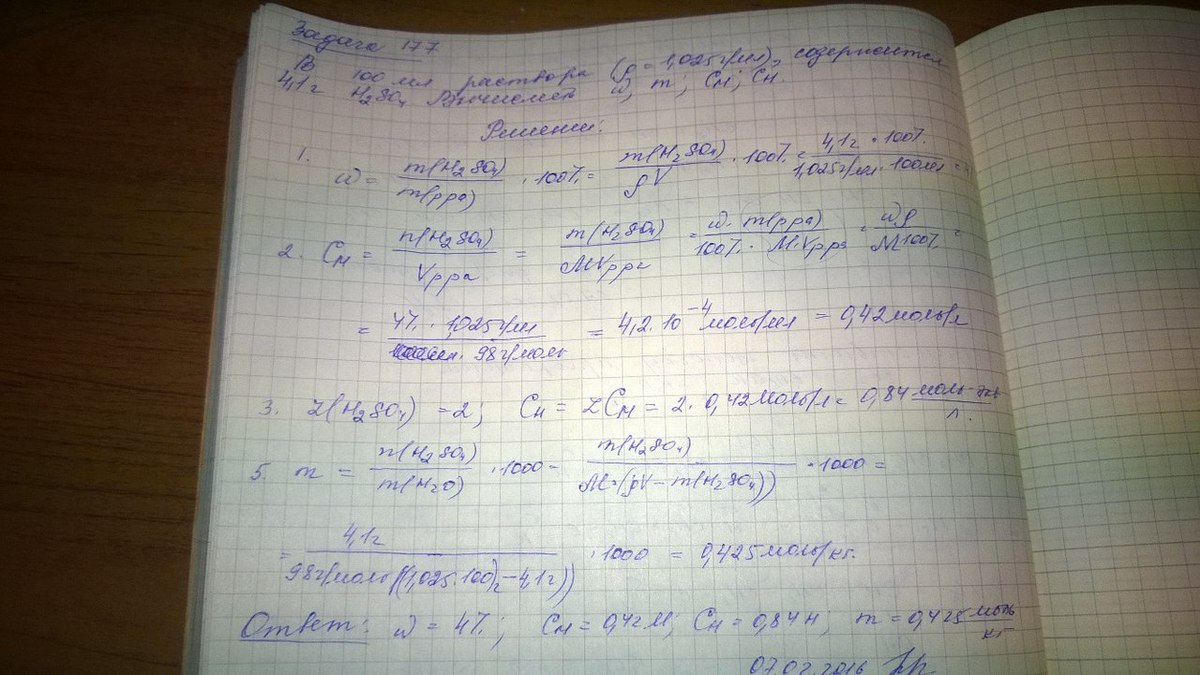 Задача 177
В 100 мл раствора (ρ = 1,025 г/мл), содержится
4,1 г H₂SO₄ Вычислить ω, m; Cм; Cн.
Решение:
1. ω = m(H₂SO₄)/m(рра) · 100% = m(H₂SO₄)/ρV · 100% = 4,1г · 100%/1,025г/мл · 100мл =
2. Cм = n(H₂SO₄)/Vрра = m(H₂SO₄)/MVрра = ω · m(рра)/100% · M·Vрра = ωρ/M 100% =
= 4% · 1,025г/мл/98г/моль = 4,2·10⁻⁴ моль/мл = 0,42 моль/л
3. Z(H₂SO₄) = 2; Cн = ZCм = 2 · 0,42 моль/л = 0,84 моль-экв/л.
5. m = n(H₂SO₄)/m(H₂O) · 1000 = m(H₂SO₄)/M·(ρV – m(H₂SO₄)) · 1000 =
= 4,1г/98г/моль((1,025·100)г – 4,1г)) · 1000 = 0,425 моль/кг.
Ответ: ω = 4%; Cм = 0,42М; Cн = 0,84н; m = 0,425 моль/кг
07.02.2016